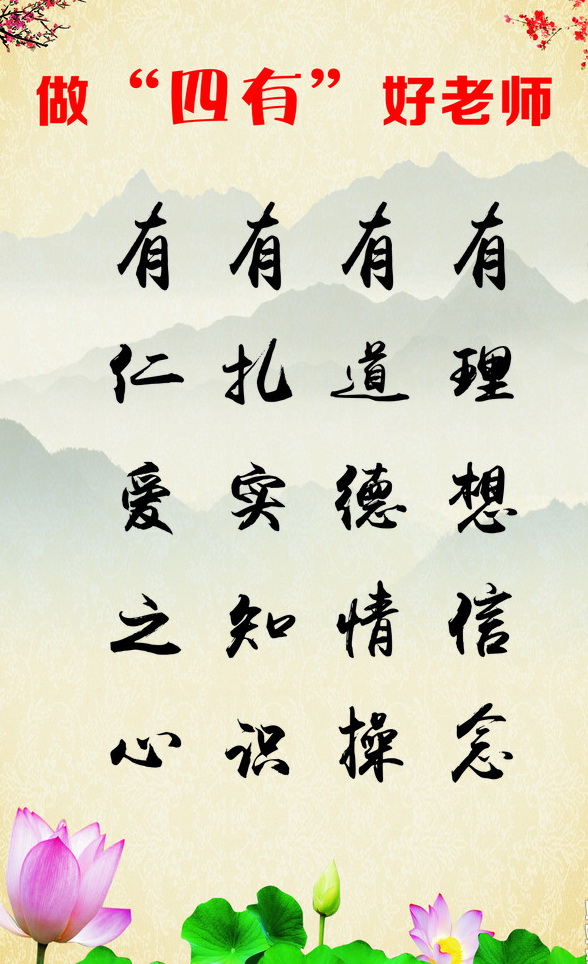 做“四有”好老师
有理想信念
有道德情操
有扎实知识
有仁爱之心